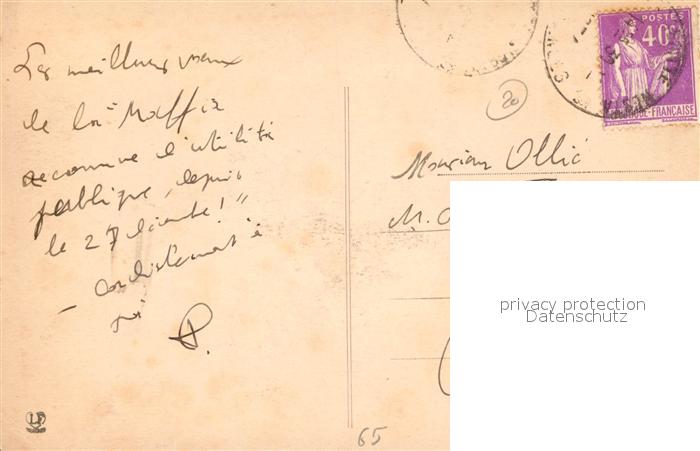 Les meilleurs voeux
de la " Maffia
reconnue d'utilité
publique, depuis
le 27 décembre ! "
cordialement à
toi
P.
20
POSTES
40c
FRANÇAISE
Monsieur Ollié
M.
privacy protection
Datenschutz
65